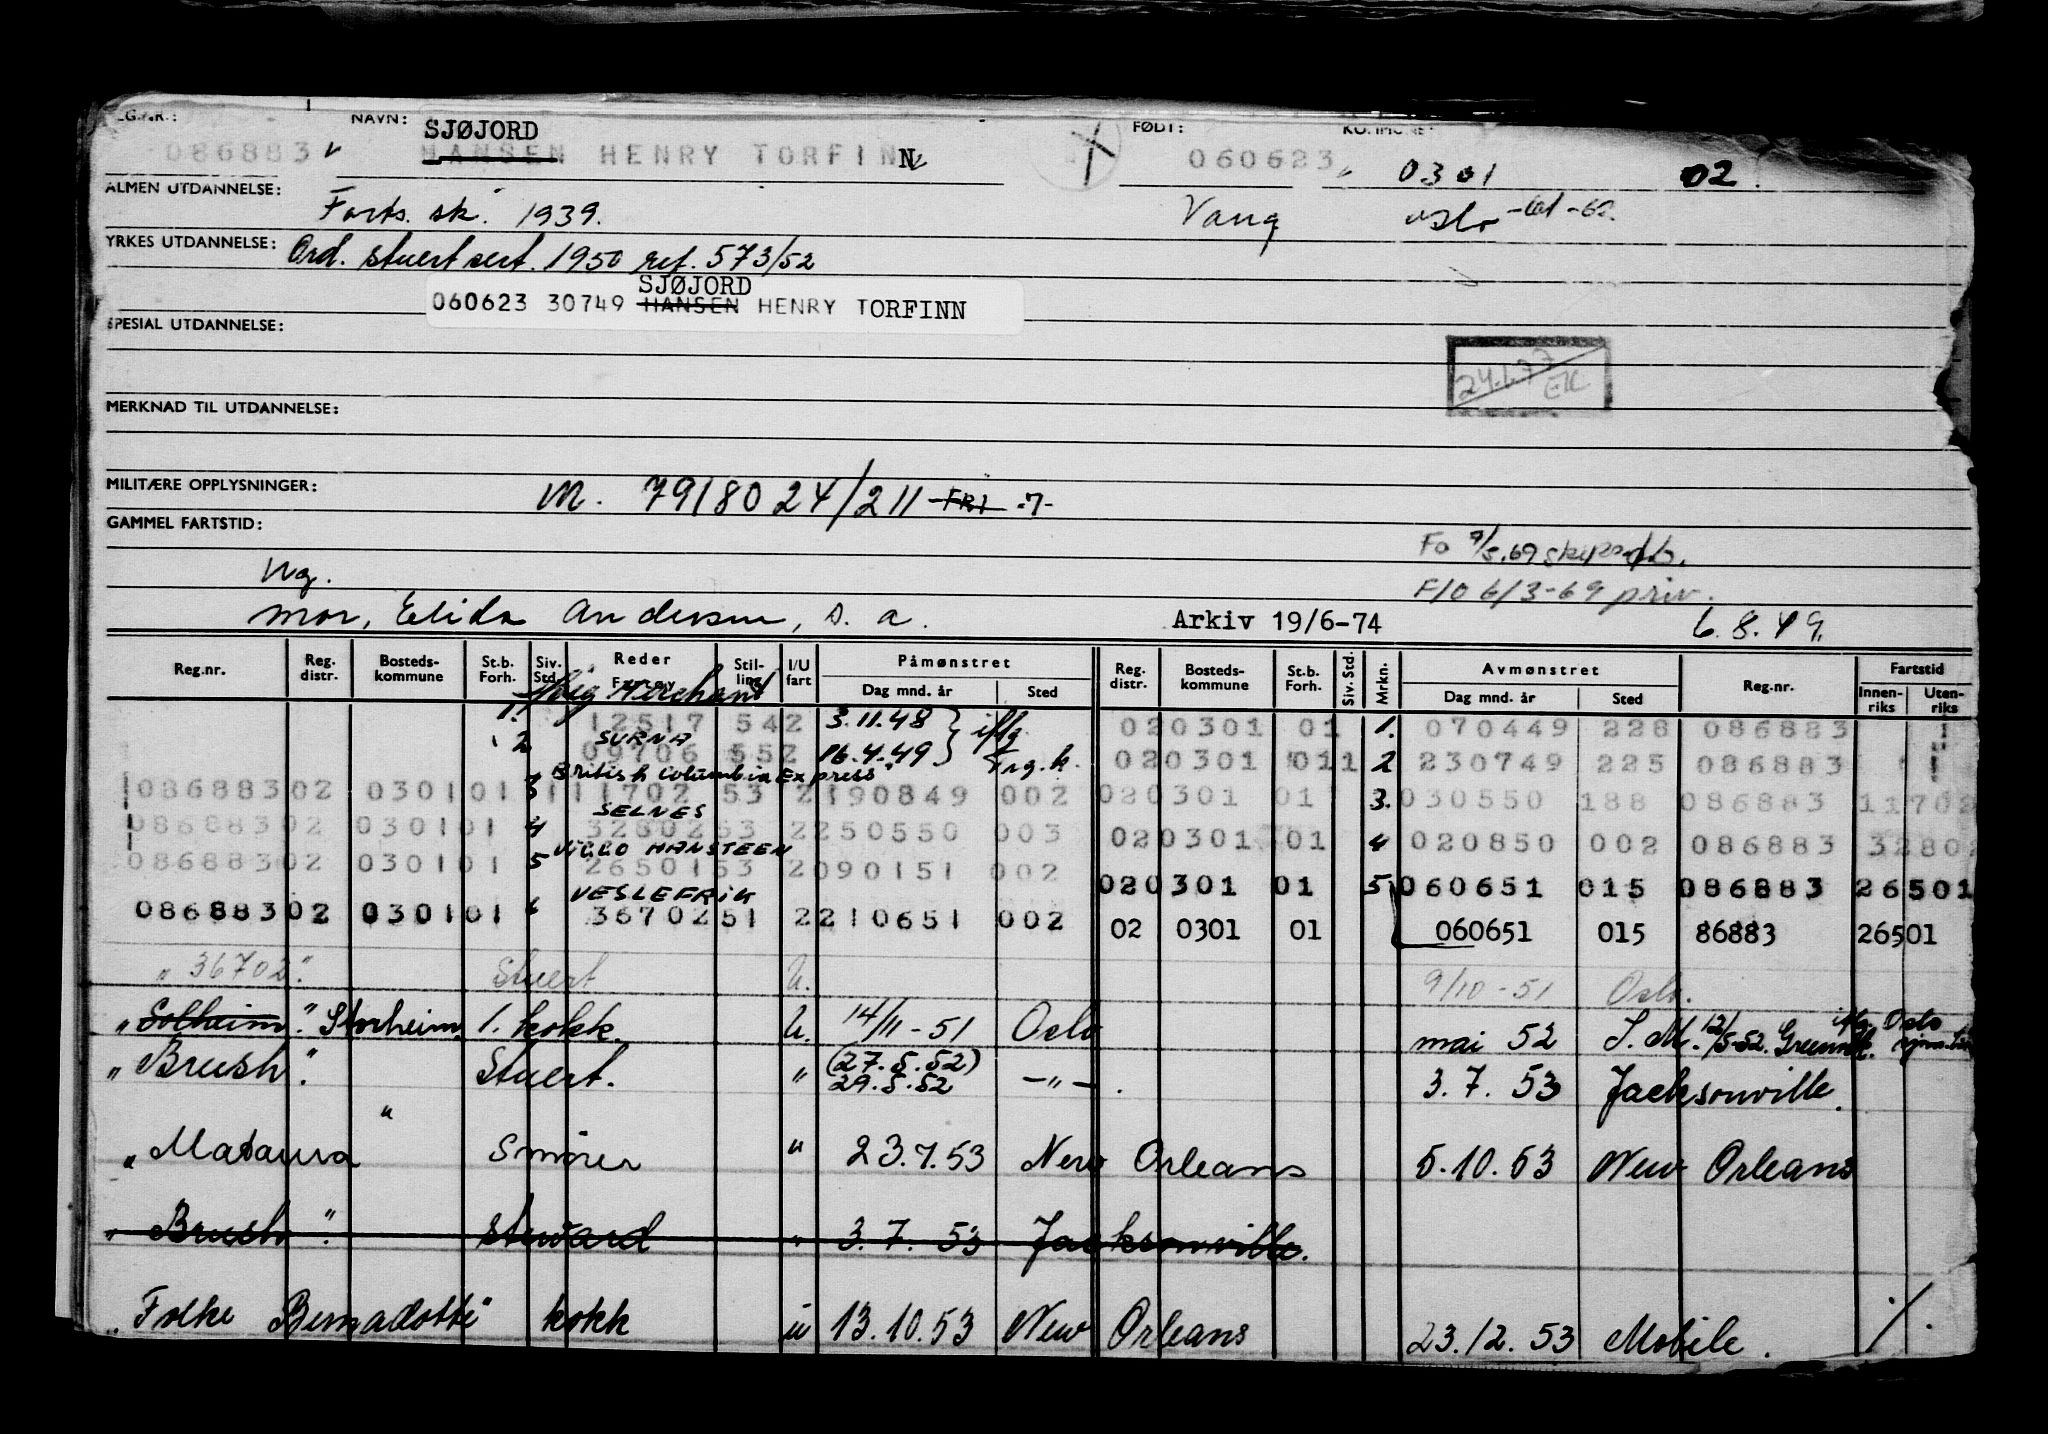 EG.NR.: NAVN: SJØJORD FØDT: KOMMUNE:
086883 HANSEN HENRY TORFINN 060623 0301 02.
ALMEN UTDANNELSE: Forts. sk. 1939. Vang Oslo
YRKES UTDANNELSE: Ord. stuertsert. 1950 ref. 573/52
SJØJORD
060623 30749 HANSEN HENRY TORFINN
SPESIAL UTDANNELSE:
24.1.77 EK
MERKNAD TIL UTDANNELSE:
MILITÆRE OPPLYSNINGER: M. 7918024/211 FRI -7-
GAMMEL FARTSTID:
Ng.
F/O 6/3-69 priv.
mor, Elida Andersen, s. a. Arkiv 19/6-74 6.8.49.
Reg.nr. Reg. distr. Bosteds-kommune St.b. Forh. Siv. Std. Reder Fartøy Stil-ling I/U fart Påmønstret Reg. distr. Bosteds-kommune St.b. Forh. Siv. Std. Mrkn. Avmønstret Reg.nr. Fartstid
Dag mnd. år Sted Dag mnd. år Sted Innen-riks Uten-riks
1. Høeg Merchant
12517 542 3.11.48 020301 01 1. 070449 228 086883
2 SURNA
09706 552 16.4.49 020301 011 2 230749 225 086883
3 British Columbia Express
08688302 030101 111702 53 2190849 002 020301 01 3. 030550 188 086883 11702
SELNES
08688302 030101 4 3280253 2250550 003 020301 01 4 020850 002 086883 32802
VIGGO HANSTEEN
08688302 030101 5 2650153 2090151 002 020301 01 5 060651 015 086883 26501
VESLEFRIK
08688302 030101 6 3670251 2210651 002 02 0301 01 060651 015 86883 26501
" 36702". Stuert U. 9/10-51 Oslo.
" Solheim". Storheim 1. kokk. U. 14/11-51 Oslo mai 52 S.M. 12/5-52.
" Brush". Stuert. " (27.5.52) 29.5.52 -"- . 3.7.53 Jacksonville.
" Mataura " Smører " 23.7.53 New Orleans 5.10.53 New Orleans
" Brush". steward " 3.7.53 Jacksonville.
" Folke Bernadotte" kokk u 13.10.53 New Orleans 23.12.53 Mobile.